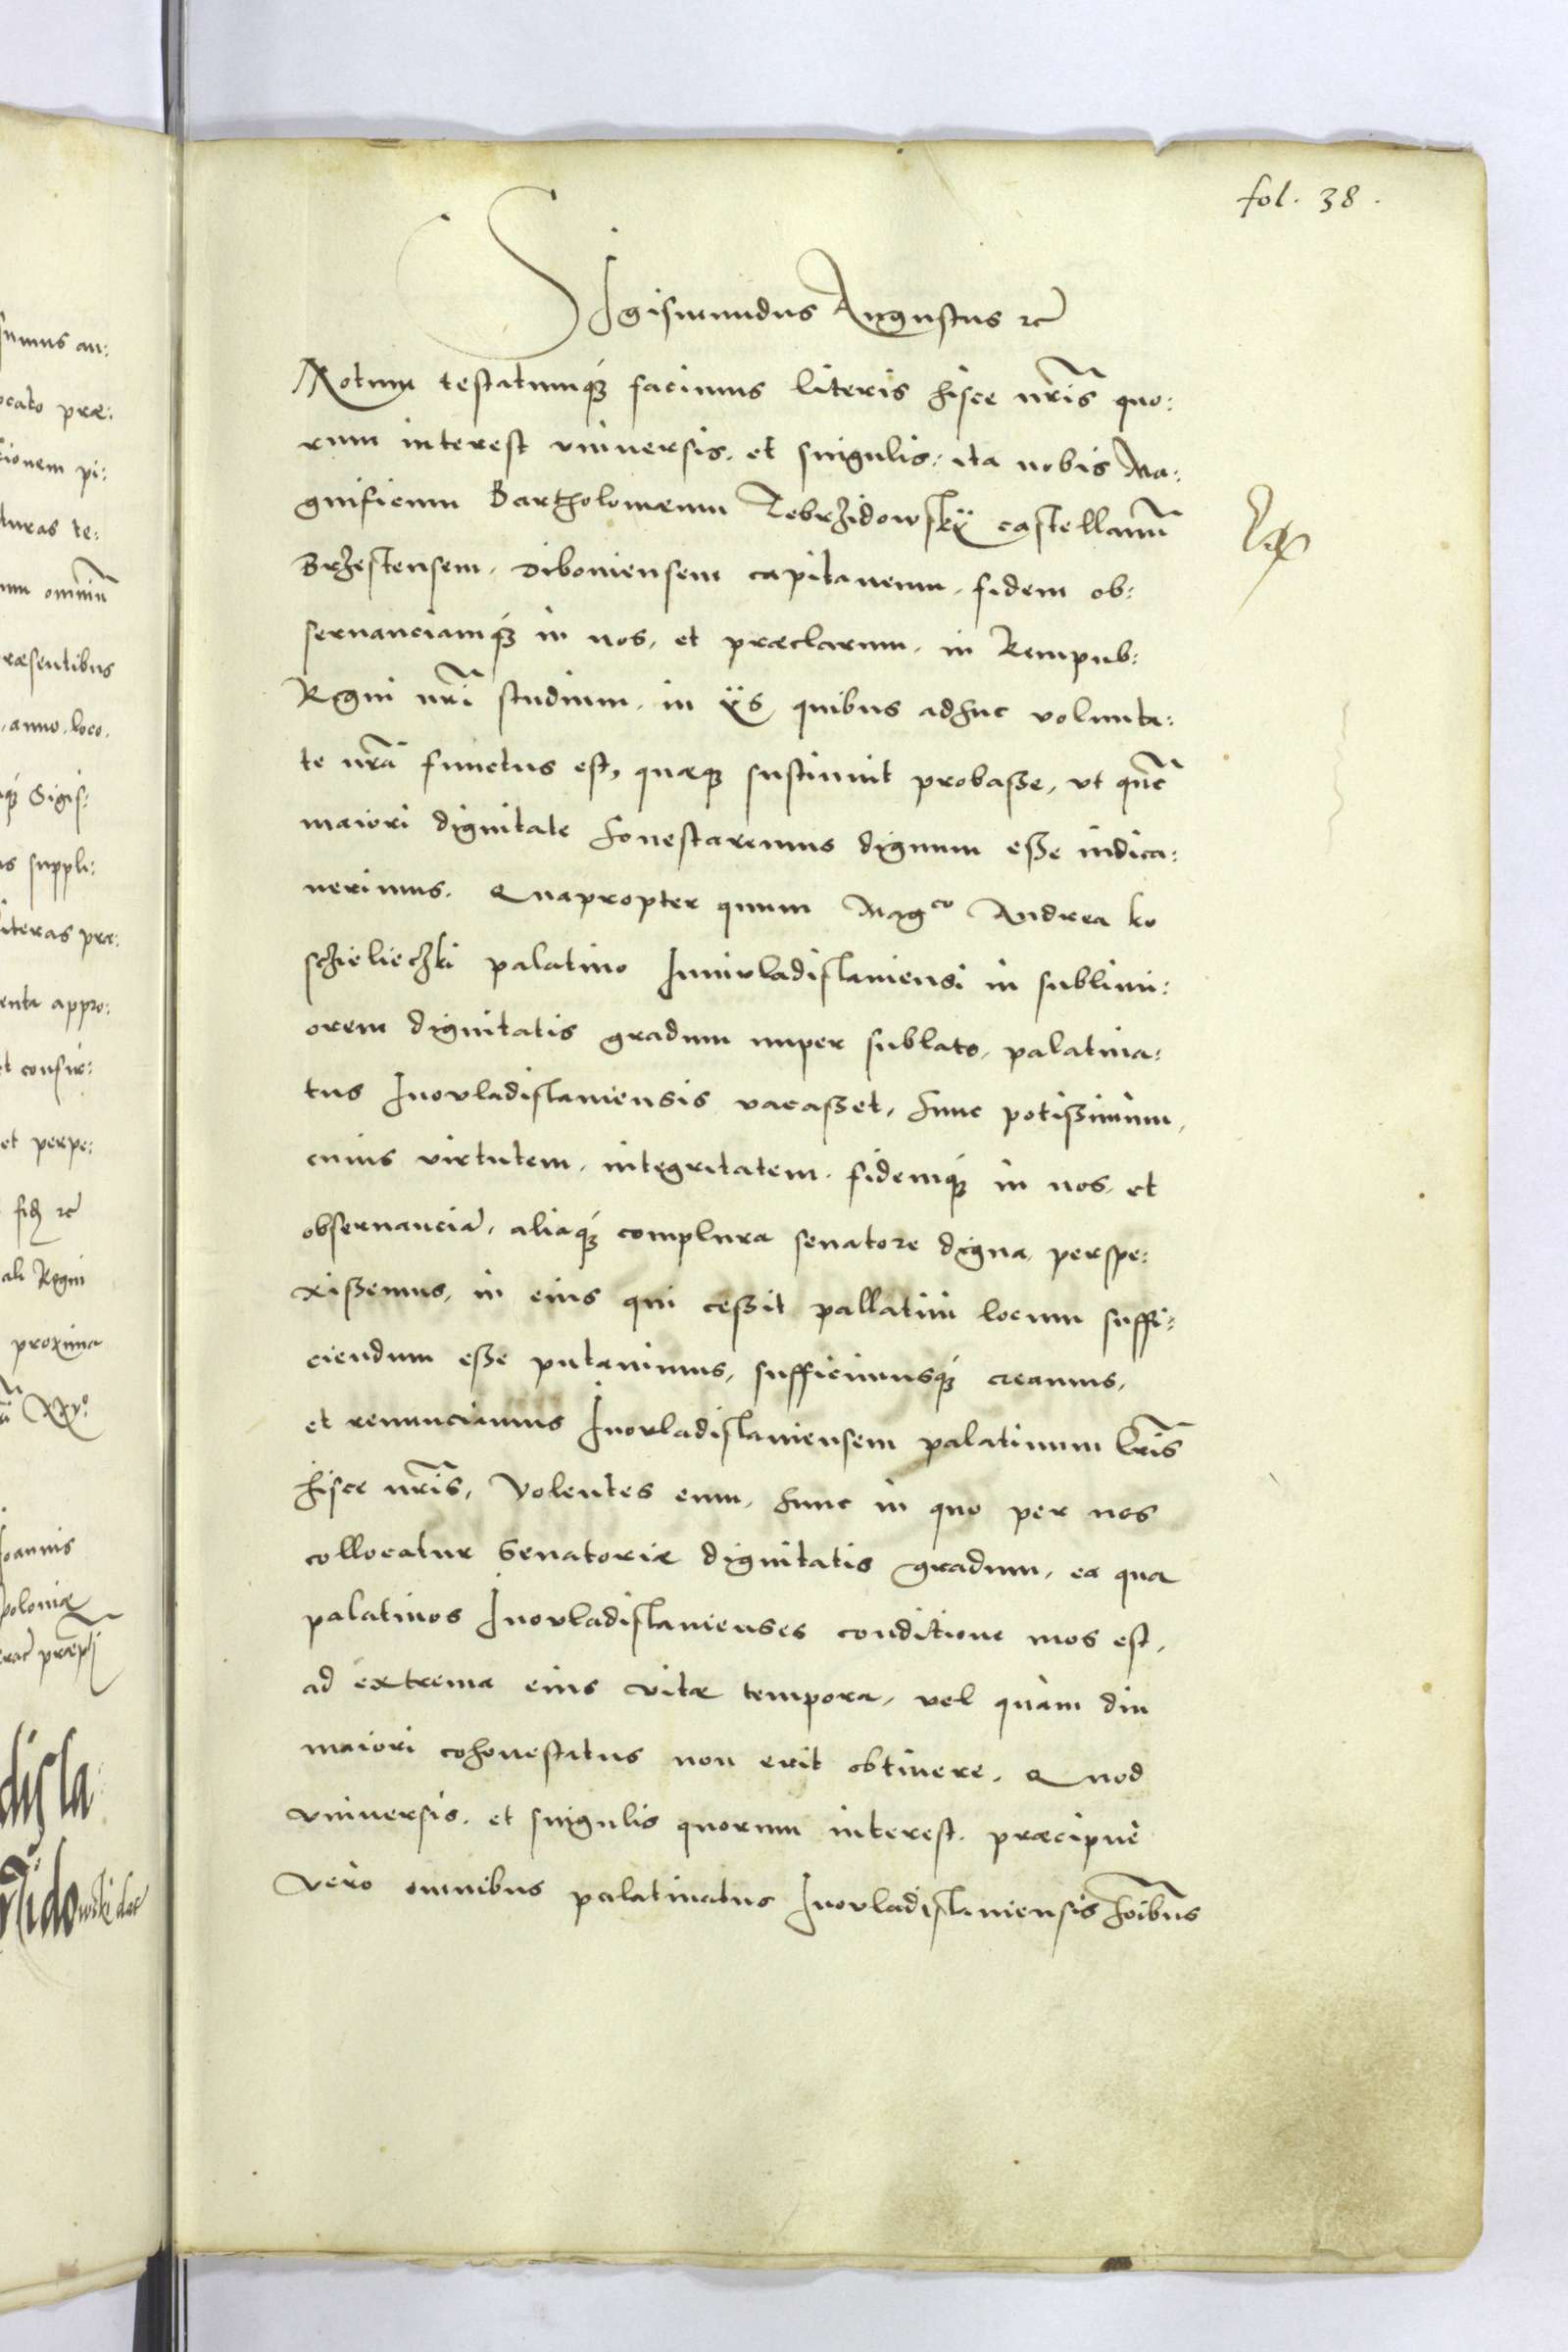 fol. 38.
Sigismundus Augustus etc
Notum testatumq́ꝫ facimus literis hisce nr̃is quo:
rum interest vniuersis, et singulis: ita nobis Ma:
gnificum Bartholomæum Zebrzidowskÿ castellanũ
Brzestensem, Diboniensem capitaneum, fidem ob:
seruanciamq́ꝫ in nos, et præclarum, in Rempub:
Regni nr̃i studium, in ÿs, quibus adhuc volunta:
te nr̃a functus est, quæqꝫ sustinuit probasse, vt
maiori dignitate honestaremus dignum esse iudica:
uerimus. Quapropter quum Mag^co Andrea ko
schielieczki palatino Iuniuladislauiensi in sublimi:
orem dignitatis gradum nuper sublato, palatina:
tus Inouladislauiensis vacasset, hunc potissimum,
cuius virtutem, integritatem, fidemq́ꝫ in nos, et
obseruanciã, aliaq́ꝫ complura senatore digna, perspe:
xissemus, in eius qui cessit pallatini locum suffi:
ciendum esse putauimus, sufficimusq́ꝫ creamus,
et renunciamus Inouladislauiensem palatinum lr̃is
hisce nr̃is, Volentes eum, hunc in quo per nos
collocatur Senatoriæ dignitatis gradum, ea qua
palatinos Inouladislauienses conditione mos est,
ad extrema eius vitæ tempora, vel quàm diu
maiori cohonestatus non erit obtinere. Quod
vniuersis, et singulis quorum interest, præcipuè
verò omnibus palatinatus Inouladislauiensis hoĩbus
sumus an:
ocato præ:
tionem pi:
turas te:
um omniũ
ræsentibus
, anno, loco,
q́ꝫ Sigis:
us suppli:
iteras præ:
enta appro:
et consir:
et perpe:
ali Regni
proxima
XXV°
Ioannis
poloniæ
disla
wski